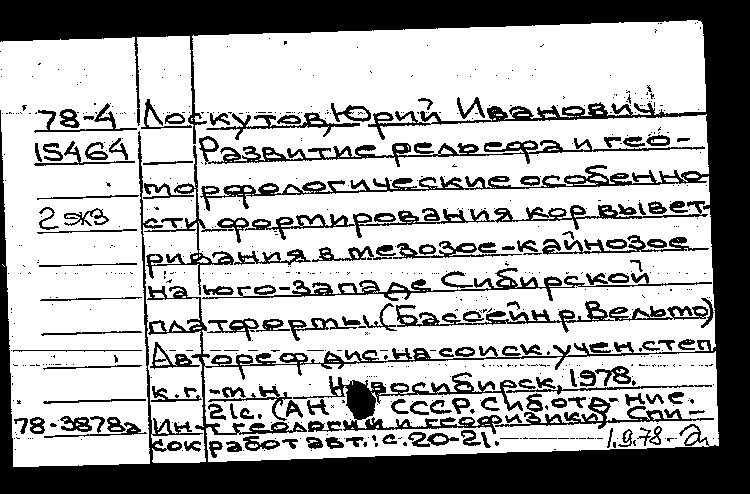 78-4 Лоскутов, Юрий Иванович.
15464 Развитие рельефа и гео-
морфологические особенно-
2 экз сти формирования кор вывет-
ривания в мезозое-кайнозое
на юго-западе Сибирской
платформы. (Бассейн р. Вельмо)
Автореф. дис. на соиск. учен. степ.
к.г.-м.н. Новосибирск, 1978.
21с. (АН СССР. Сиб. отд-ние.
78-3878а Ин-т геологии и геофизики). Спи-
сок работ авт.: с. 20-21. 1.9.78-